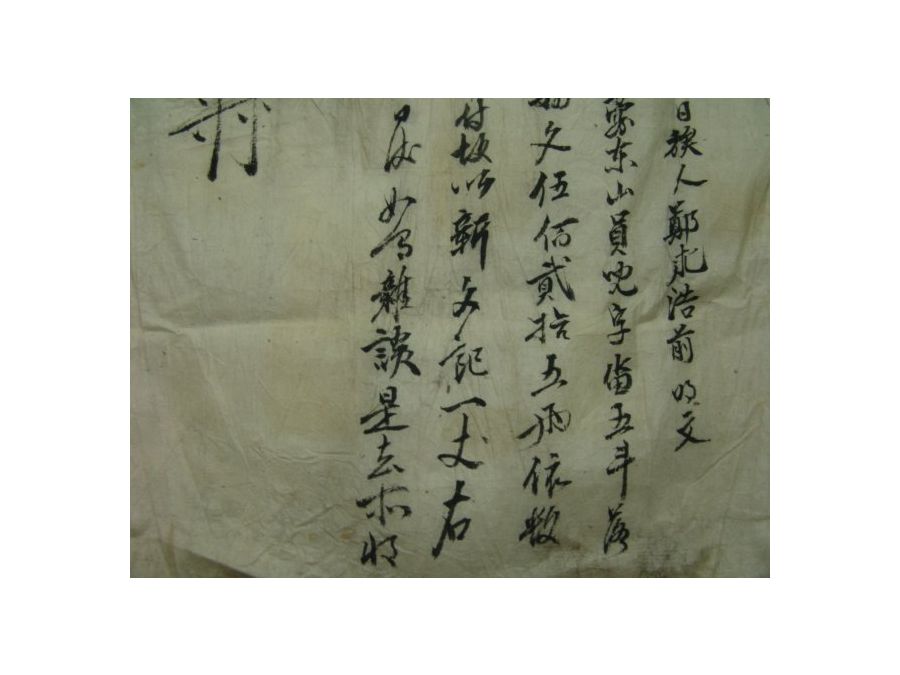 日族人鄭光浩前明文
東山員兜字畓五斗落
文伍佰貳拾五兩依數
付故以新文記一丈右
日後如有雜談是去所將